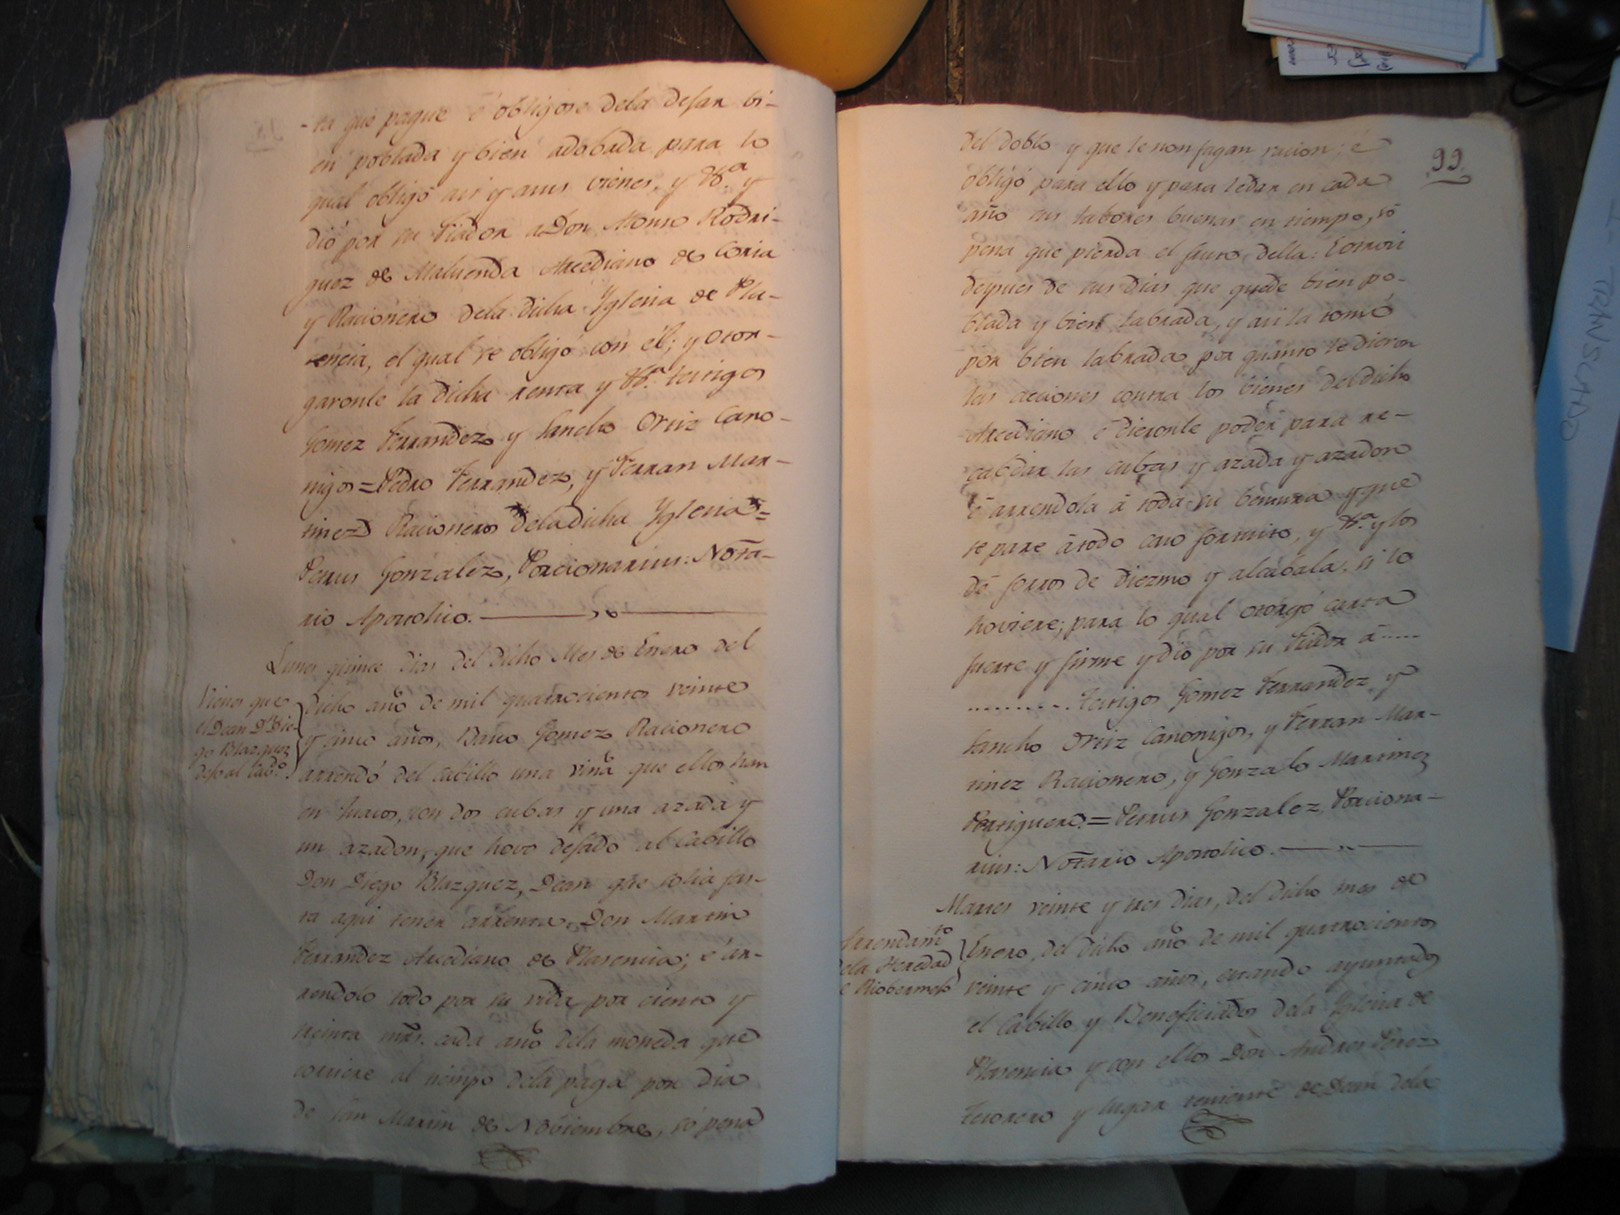 -ta que pague é obligose dela desar bi-
en poblada y bien adobada para lo
qual obligó asi y asus vienes, y &ª y
dió por su Fiador a Don Alonso Rodri-
guez de Maluenda Arcediano de Coria
y Racionero dela dicha Yglesia de Pla-
sencia, el qual se obligó con él; y otor-
garonle la dicha renta y &ª testigos
Gomez Ferrandez y Sancho Ortiz Cano-
nigos = Pedro Ferrandez, y Ferran Mar-
tinez Racioneros dela dicha Yglesia =
Petrus Gonzalez, Porcionarius: Nota-
rio Apostolico.
Lunes quince dias del dicho Mes de Enero del
dicho año de mil quatrocientos veinte
y cinco años, Gomez Racionero
arrendó del Cabillo una viña que ellos han
en con dos cubas y una azada y
un azadon, que hovo desado al Cabillo
Don Diego Blazquez, Dean que solia fas-
ta aqui tener arrenta Don Martin
Ferrandez Arcediano de Plasencia; é ar-
rendolo todo por su vida por ciento y
treinta mrs. cada año dela moneda que
corriere al tiempo dela paga por dia
de San Martin de Noviembre, só pena
Viñas que
el Dean Dⁿ Die-
go Blazquez
deso al Cabº.
99.
del doblo y que le non fagan racion; é
obligó para ello y para ledar en cada
año sus labores buenas en tiempo, só
pena que pierda el fruto della: Eotrosi
depues de sus dias que quede bien po-
blada y bien labrada, y asi la tomó
por bien labrada por quanto le dieron
las acciones contra los bienes del dicho
Arcediano é dieronle podér para re-
cabdar las cubas y azada y azadon
é arrendola á toda su bentura y que
se pare á todo caso fortuito, y &ª y los
dé forros de diezmo y alcabala, si lo
hoviere; para lo qual otorgó carta
fuerte y firme y dio por su Fiador á .....
.......... testigos Gomez Ferrandez y
Sancho Ortiz Canonigos, y Ferran Mar-
tinez Racionero, y Gonzalo Martinez
Pertiguero. = Petrus Gonzalez Porciona-
rius: Notario Apostolico.
Martes veinte y tres dias, del dicho mes de
Enero, del dicho año de mil quatrocientos
veinte y cinco años, estando ayuntados
el Cabillo y Beneficiados dela Yglesia de
Plasencia y con ellos Don Andres Perez
Tesorero y lugar teniente de Dean dela
Arrendamto
dela Heredad
e Riobermejo
TRANSCRITO